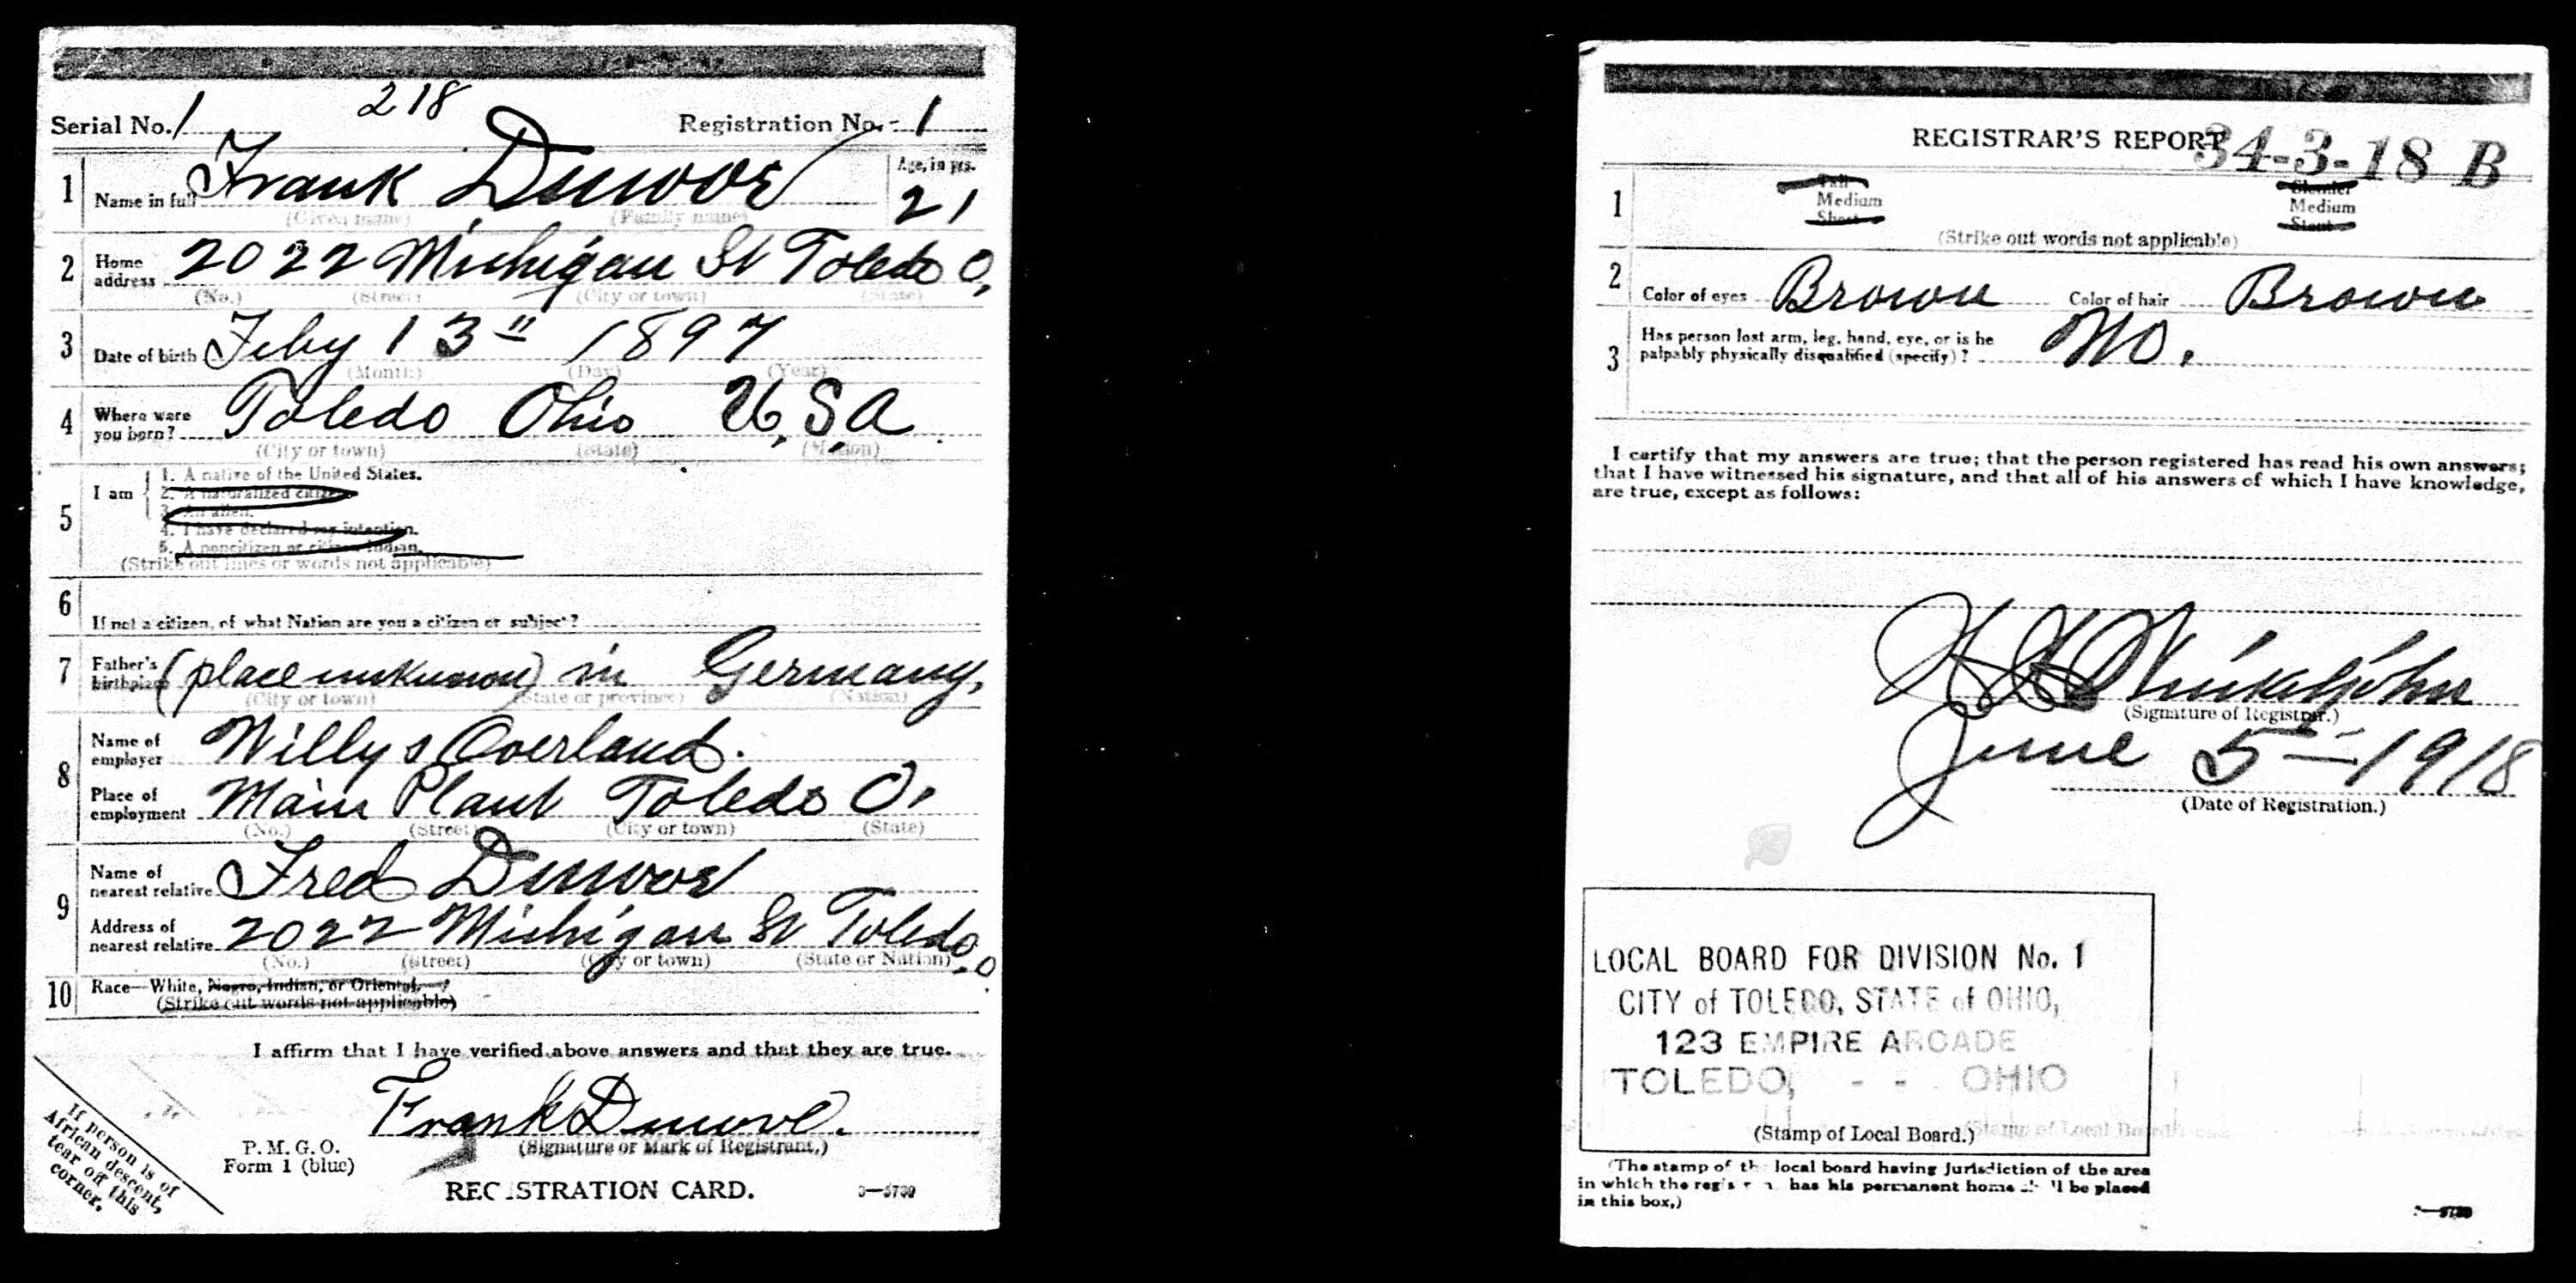 218
Serial No. 1 Registration No. 1
1 Name in full Frank Dunwoe Age, in yrs. 21
(Given name) (Family name)
2 Home address 2022 Michigan St Toledo O,
(No.) (Street) (City or town) (State)
3 Date of birth Feby 13" 1897
(Month) (Day) (Year)
4 Where were you born? Toledo Ohio U.S.A.
(City or town) (State) (Nation)
5 I am
1. A native of the United States.
2. A naturalized citizen.
3. An alien.
4. I have declared my intention.
5. A noncitizen or citizen Indian.
(Strike out lines or words not applicable)
6 If not a citizen, of what Nation are you a citizen or subject?
7 Father's birthplace (place unknown) in Germany,
(City or town) (State or province) (Nation)
8 Name of employer Willys Overland.
Place of employment Main Plant Toledo O.
(No.) (Street) (City or town) (State)
9 Name of nearest relative Fred Dunwoe
Address of nearest relative 2022 Michigan St Toledo, O.
(No.) (Street) (City or town) (State or Nation)
10 Race—White, Negro, Indian, or Oriental
(Strike out words not applicable)
I affirm that I have verified above answers and that they are true.
Frank Dunwoe.
(Signature or Mark of Registrant.)
P. M. G. O.
Form 1 (blue)
REGISTRATION CARD.
3—5730
If person is of
African descent,
tear off this
corner.
REGISTRAR'S REPORT 34-3-18 B
1 Tall Slender
Medium Medium
Short Stout
(Strike out words not applicable)
2 Color of eyes Brown Color of hair Brown
3 Has person lost arm, leg, hand, eye, or is he
palpably physically disqualified (specify)? No.
I certify that my answers are true; that the person registered has read his own answers;
that I have witnessed his signature, and that all of his answers of which I have knowledge,
are true, except as follows:
(Signature of Registrar.)
June 5—1918
(Date of Registration.)
LOCAL BOARD FOR DIVISION No. 1
CITY of TOLEDO, STATE of OHIO,
123 EMPIRE ARCADE
TOLEDO, - - OHIO
(Stamp of Local Board.)
(The stamp of the local board having jurisdiction of the area
in which the registrant has his permanent home shall be placed
in this box.)